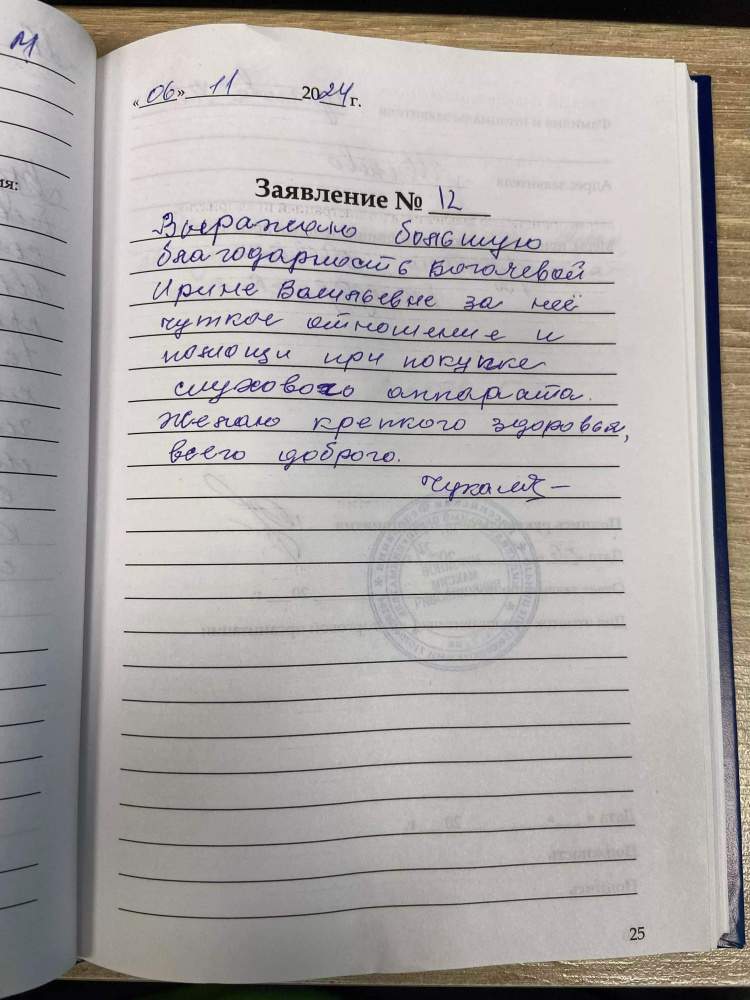 м
ия:
«06» 11 2024 г.
Заявление № 12
Выражаю большую
благодарность Богачевой
Ирине Васильевне за неё
чуткое отношение и
помощи при покупке
слухового аппарата.
Желаю крепкого здоровья,
всего доброго.
25